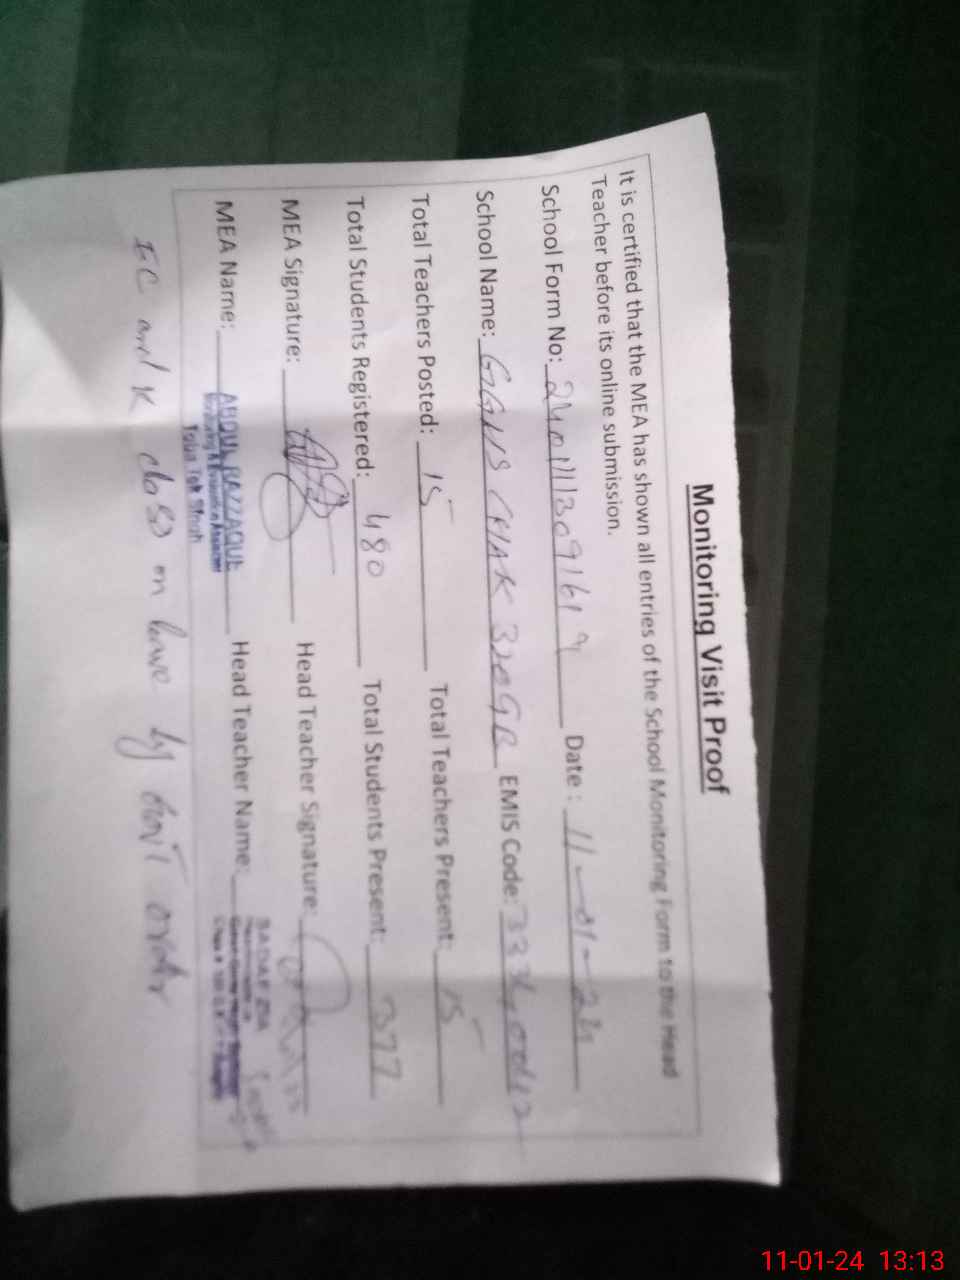 Monitoring Visit Proof
It is certified that the MEA has shown all entries of the School Monitoring Form to the Head
Teacher before its online submission.
School Form No: Date: 11-01-24
School Name: GGHS CHAK 320 GB EMIS Code:
Total Teachers Posted: 15 Total Teachers Present: 15
Total Students Registered: 480 Total Students Present: 377
MEA Signature: Head Teacher Signature:
MEA Name: ABDUL RAZZAQUE Head Teacher Name: SADAF ZIA
Monitoring & Evaluation Assistant
Toba Tek Singh
and K class on leave by Govt order
11-01-24 13:13